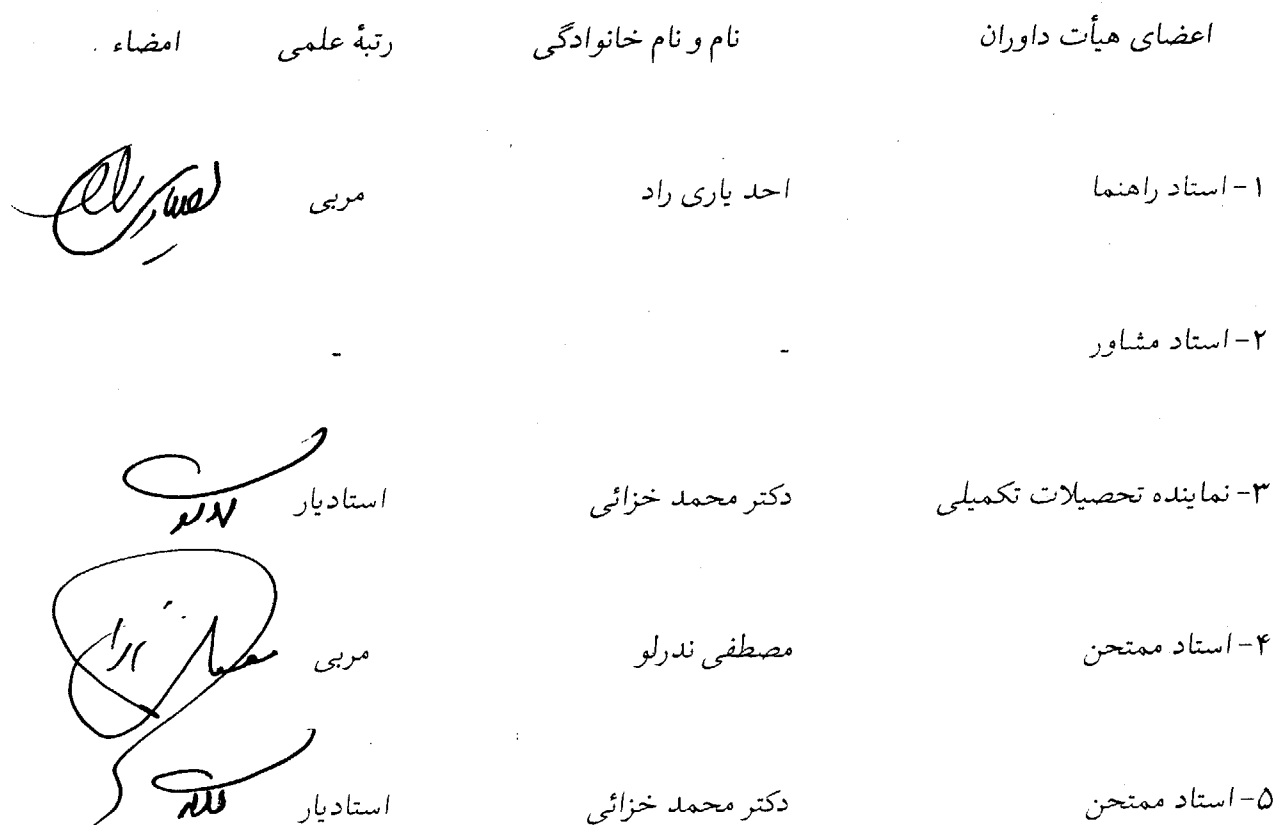 اعضای هیأت داوران نام و نام خانوادگی رتبهٔ علمی امضاء
۱- استاد راهنما احد یاری راد مربی
۲- استاد مشاور - -
۳- نماینده تحصیلات تکمیلی دکتر محمد خزائی استادیار
۴- استاد ممتحن مصطفی ندرلو مربی
۵- استاد ممتحن دکتر محمد خزائی استادیار